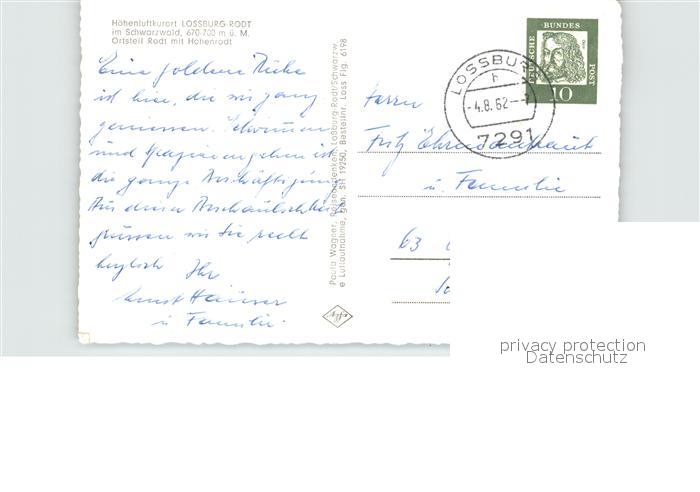 Höhenluftkurort LOSSBURG-RODT
im Schwarzwald, 670-700 m ü. M.
Ortsteil Rodt mit Hohenrodt
Eine goldene Ruhe
ist hier, die wir ganz
geniessen. Schwimmen
und Spazierengehen ist
die ganze Beschäftigung
Aus dieser Beschaulichkeit
grüssen wir Sie recht
herzlich Ihr
Ernst
u. Familie.
Paula Wagner, Reiseandenken, Loßburg-Rodt/Schwarzw.
Luftaufnahme, gen. SH 19250, Bestellnr. Loss Flg. 6198
DEUTSCHE BUNDES POST
10
LOSSBURG
h
-4.8.62--7
7291
Herrn
Fritz
u. Familie
63
privacy protection
Datenschutz